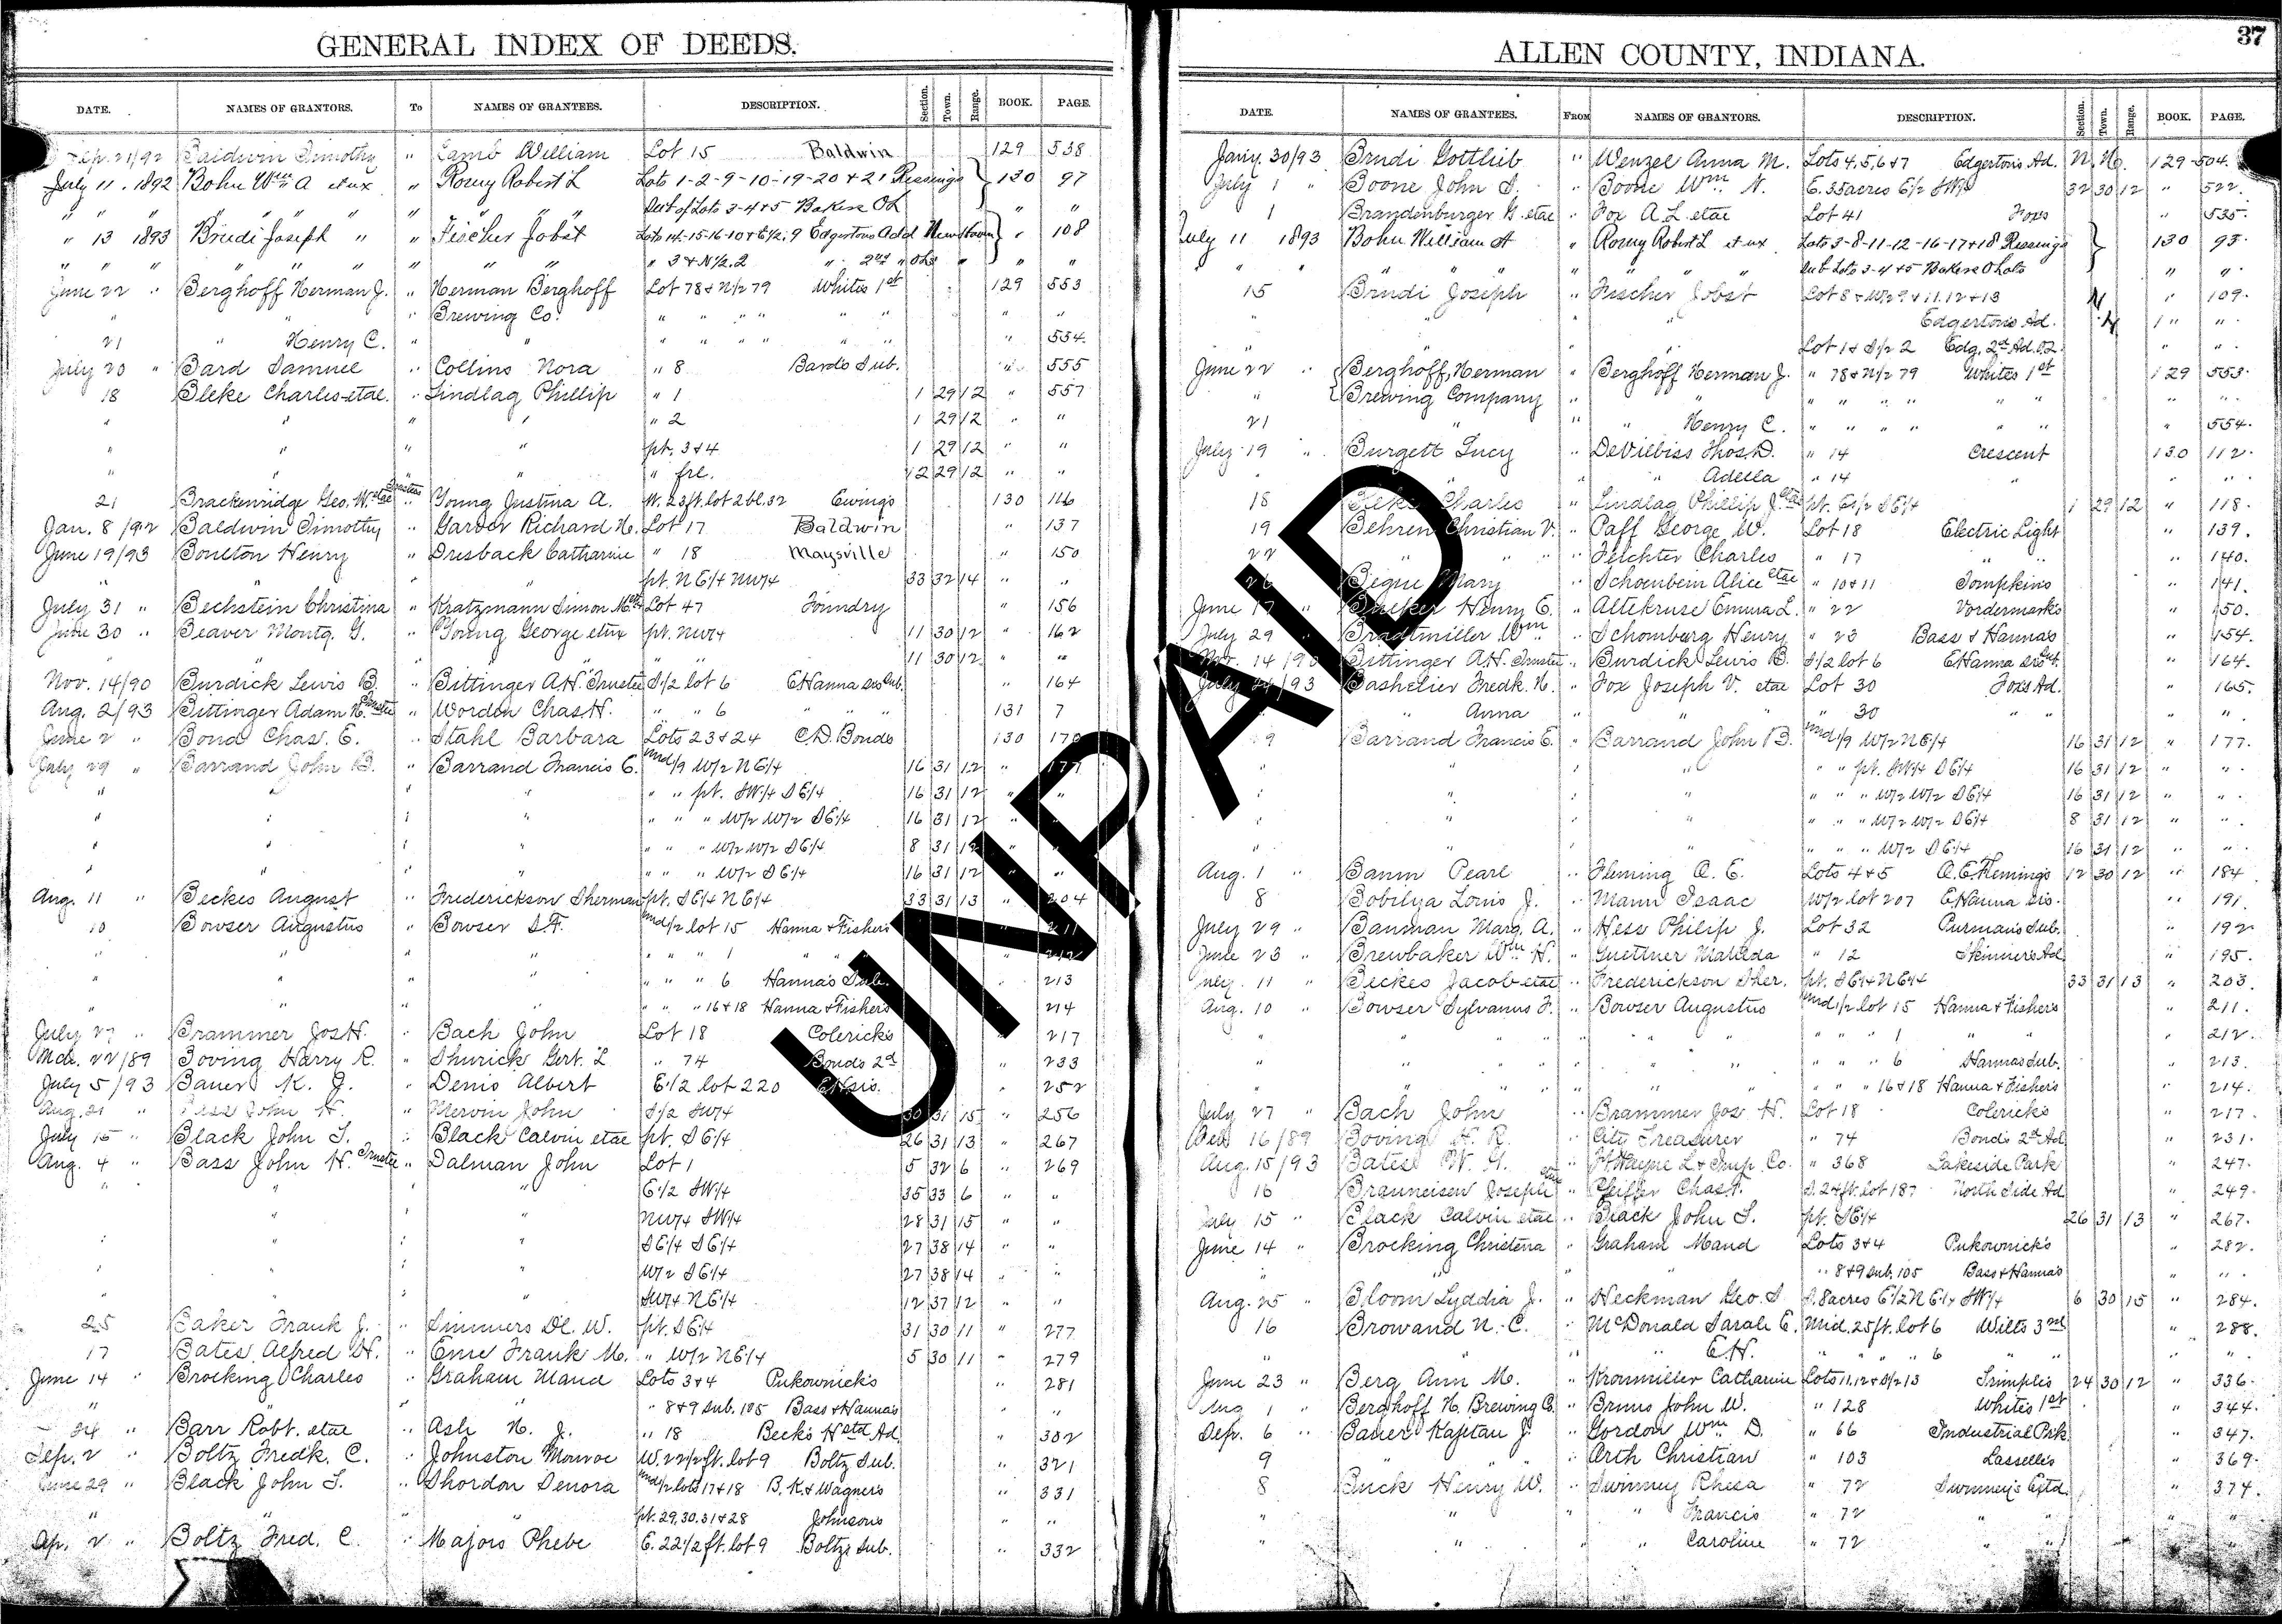 GENERAL INDEX OF DEEDS.
DATE. NAMES OF GRANTORS. To NAMES OF GRANTEES. DESCRIPTION. Section. Town. Range. BOOK. PAGE.
Sep. 21/92 Baldwin Timothy " Lamb William Lot 15 Baldwin 129 538
July 11. 1892 Bohn Wm A et ux " Romy Robert L Lots 1-2-9-10-19-20 & 21 Ressings 130 97
" " " " " " Sub of Lots 3-4 & 5 Bakers OL " "
" 13 1893 Brudi Joseph " " Fischer Jobst Lots 14-15-16-10 & E1/2. 9 Edgertons Add New Haven " 108
" " " " " " " " " 3 & N1/2. 2 " 2nd " OLs " " "
June 22 " Berghoff Herman J. " Herman Berghoff Lot 78 & N1/2 79 Whites 1st 129 553
" " " Brewing Co. " " " " " " " "
21 " Henry C. " " " " " " " " " 554.
July 20 " Bard Samuel " Collins Nora " 8 Bards Sub. " 555
18 Bleke Charles etal. " Lindlag Phillip " 1 1 29 12 " 557
" " " " 2 1 29 12 " "
" " " " pt. 3 & 4 1 29 12 " "
" " " " frl. 12 29 12 " "
21 Brackenridge Geo. W. etal Trustees " Young Justina A. W. 23 ft. lot 2 bl. 32 Ewings 130 116
Jan. 8/92 Baldwin Timothy " Garver Richard H. Lot 17 Baldwin " 137
June 19/93 Boulton Henry " Dresback Catharine " 18 Maysville " 150
" " " pt. NE1/4 NW1/4 33 32 14 " "
July 31 " Bechstein Christina " Kratzmann Simon M. Lot 47 Foundry " 156
June 30 " Beaver Montg. G. " Young George etux pt. NW1/4 11 30 12 " 162
" " " " 11 30 12 " "
Nov. 14/90 Burdick Lewis B. " Bittinger A.H. Trustee S1/2 lot 6 E Hanna sis Sub. " 164
Aug. 2/93 Bittinger Adam H. Trustee " Worden Chas H. " " 6 " " 131 7
June 2 " Bond Chas. E. " Stahl Barbara Lots 23 & 24 C.D. Bonds 130 170
July 29 " Barrand John B. " Barrand Francis E. Und 1/9 W1/2 NE1/4 16 31 12 " 177
" " " " " " pt. SW1/4 SE1/4 16 31 12 " "
" " " " " " " W1/2 W1/2 SE1/4 16 31 12 " "
" " " " " " " W1/2 W1/2 SE1/4 8 31 12 " "
" " " " " " " W1/2 SE1/4 16 31 12 " "
Aug. 11 " Beckes August " Frederickson Sherman pt. SE1/4 NE1/4 33 31 13 " 204
10 Bowser Augustus " Bowser S.F. Und 1/2 lot 15 Hanna & Fishers " 211
" " " " " " 1 " " " 212
" " " " " " 6 Hanna's Sub. " 213
" " " " " " 16 & 18 Hanna & Fishers " 214
July 27 " Brammer Jos H. " Bach John Lot 18 Colericks " 217
Mch. 22/89 Boving Harry R. " Shurick Gert. L " 74 Bonds 2d " 233
July 5/93 Bauer K. J. " Denis Albert E1/2 lot 220 E H sis. " 252
Aug. 21 " Bass John H. " Mervin John S1/2 SW1/4 30 31 15 " 256
July 15 " Black John S. " Black Calvin etal pt. SE1/4 26 31 13 " 267
Aug. 4 " Bass John H. Trustee " Dalman John Lot 1 5 32 6 " 269
" " " E1/2 SW1/4 35 33 6 " "
" " " NW1/4 SW1/4 28 31 15 " "
" " " SE1/4 SE1/4 27 38 14 " "
" " " W1/2 SE1/4 27 38 14 " "
" " " SW1/4 NE1/4 12 37 12 " "
25 Baker Frank J. " Simmers De. W. pt. SE1/4 31 30 11 " 277
17 Bates Alfred H. " Eme Frank M. " W1/2 NE1/4 5 30 11 " 279
June 14 " Brocking Charles " Graham Maud Lots 3 & 4 Pukownick's " 281
" " " " 8 & 9 sub. 105 Bass & Hannas " "
24 " Barr Robt. etal " Ash H. J. " 18 Becks Hstd Ad. " 302
Sep. 2 " Boltz Fredk. C. " Johnston Monroe W. 22 1/2 ft. lot 9 Boltz Sub. " 321
June 29 " Black John S. " Shordon Denora Und 1/2 lots 17 & 18 B. K. & Wagners " 331
" " pt. 29, 30, 31 & 28 Johnsons " "
Sep. 2 " Boltz Fred. C. " Majors Phebe E. 22 1/2 ft. lot 9 Boltz Sub. " 332
ALLEN COUNTY, INDIANA. 37
DATE. NAMES OF GRANTEES. FROM NAMES OF GRANTORS. DESCRIPTION. Section. Town. Range. BOOK. PAGE.
Jany 30/93 Brudi Gottlieb " Wenzel Anna M. Lots 4, 5, 6 & 7 Edgertons Ad. N. H. 129 504.
July 1 " Boone John S. " Boone Wm N. E. 35 acres E1/2 SW1/4 32 30 12 " 522.
1 Brandenburger G. etal " Fox A L etal Lot 41 Foxs " 535.
July 11 1893 Bohn William A " Romy Robert L et ux Lots 3-8-11-12-16-17 & 18 Ressings 130 95.
" " " " " Sub Lots 3-4 & 5 Bakers O Lots " "
15 Brudi Joseph " Fischer Jobst Lot 8 & W1/2 9 & 11. 12 & 13 N " 109.
" " " Edgertons Ad. H " "
" " " Lot 1 & S1/2 2 Edg. 2d Ad. O.L. " "
June 22 " Berghoff, Herman " Berghoff Herman J. " 78 & N1/2 79 Whites 1st 129 553.
" Brewing Company " " " " " " " " "
21 " " Henry C. " " " " " " " 554.
July 19 " Burgett Lucy " DeVilbiss Thos. D. " 14 Crescent 130 112.
" " " Adella " 14 " " "
18 Bleke Charles " Lindlag Phillip J. etal pt. E1/2 SE1/4 1 29 12 " 118.
19 Behren Christian V. " Paff George W. Lot 18 Electric Light " 139.
22 " " " Felchter Charles " 17 " " 140.
26 Begue Mary " Schoenbein Alice etal " 10 & 11 Tompkins " 141.
June 17 " Henry C. " Altekruse Emma L. " 22 Vordermarks " 150.
July 29 " Bradtmiller Wm " Schomburg Henry " 23 Bass & Hannas " 154.
Nov. 14/90 Bittinger A.H. Trustee " Burdick Lewis B. S1/2 lot 6 E Hanna sis Sub. " 164.
July 24/93 Bashelier Fredk. H. " Fox Joseph V. etal Lot 30 Foxs Ad. " 165.
" Anna " " " 30 " " "
9 Barrand Francis E. " Barrand John B. Und 1/9 W1/2 NE1/4 16 31 12 " 177.
" " " " " " pt. SW1/4 SE1/4 16 31 12 " "
" " " " " " " W1/2 W1/2 SE1/4 16 31 12 " "
" " " " " " " W1/2 W1/2 SE1/4 8 31 12 " "
" " " " " " " W1/2 SE1/4 16 31 12 " "
Aug. 1 " Baum Pearl " Fleming A. E. Lots 4 & 5 A. E. Flemings 12 30 12 " 184
8 Bobilya Louis J. " Mann Isaac W1/2 lot 207 E Hanna sis. " 191.
July 29 " Bauman Marg. A. " Hess Philip J. Lot 32 Purmans Sub. " 192
June 23 " Brewbaker Wm H. " Guettner Matilda " 12 Skinners Ad " 195.
July. 11 " Beckes Jacob etal " Frederickson Sher. pt. SE1/4 NE1/4 33 31 13 " 203.
Aug. 10 " Bowser Sylvanus F. " Bowser Augustus Und 1/2 lot 15 Hanna & Fishers " 211.
" " " " " " " 1 " " " 212.
" " " " " " " 6 Hannas Sub. " 213.
" " " " " " " 16 & 18 Hanna & Fishers " 214.
July 27 " Bach John " Brammer Jos H. Lot 18 Colericks " 217.
Feb 16/89 Boving H. R. " City Treasurer " 74 Bonds 2d Ad " 231.
Aug. 15/93 Bates W. G. " Ft Wayne L & Imp. Co. " 368 Lakeside Park " 247.
16 Brauneisen Joseph etux " Pfeiffer Chas F. S. 24 ft. lot 187 North Side Ad " 249.
July 15 " Black Calvin etal " Black John S. pt. SE1/4 26 31 13 " 267.
June 14 " Brocking Christena " Graham Maud Lots 3 & 4 Pukownick's " 282.
" " " " 8 & 9 sub. 105 Bass & Hannas " "
Aug. 25 " Bloom Lyddia J. " Heckman Geo. S S. 8 acres E1/2 NE1/4 SW1/4 6 30 15 " 284.
16 Browand N. C. " McDonald Sarah E. Mid. 25 ft. lot 6 Wilts 3rd " 288.
" " " " E. H. " " " 6 " " "
June 23 " Berg Ann M. " Kronmiller Catharine Lots 11. 12 & S1/2 13 Trimples 24 30 12 " 336.
Aug 1 " Berghoff H. Brewing Co. " Bruns John W. " 128 Whites 1st " 344.
Sep. 6 " Bauer Kajetan J. " Gordon Wm D. " 66 Industrial Park " 347.
9 " " " Arth Christian " 103 Lasselles " 369.
8 Buck Henry W. " Swinney Rhesa " 72 Swinney's Extd. " 374.
" " " " Francis " 72 " " "
" " " " Caroline " 72 " " "
UNPAID